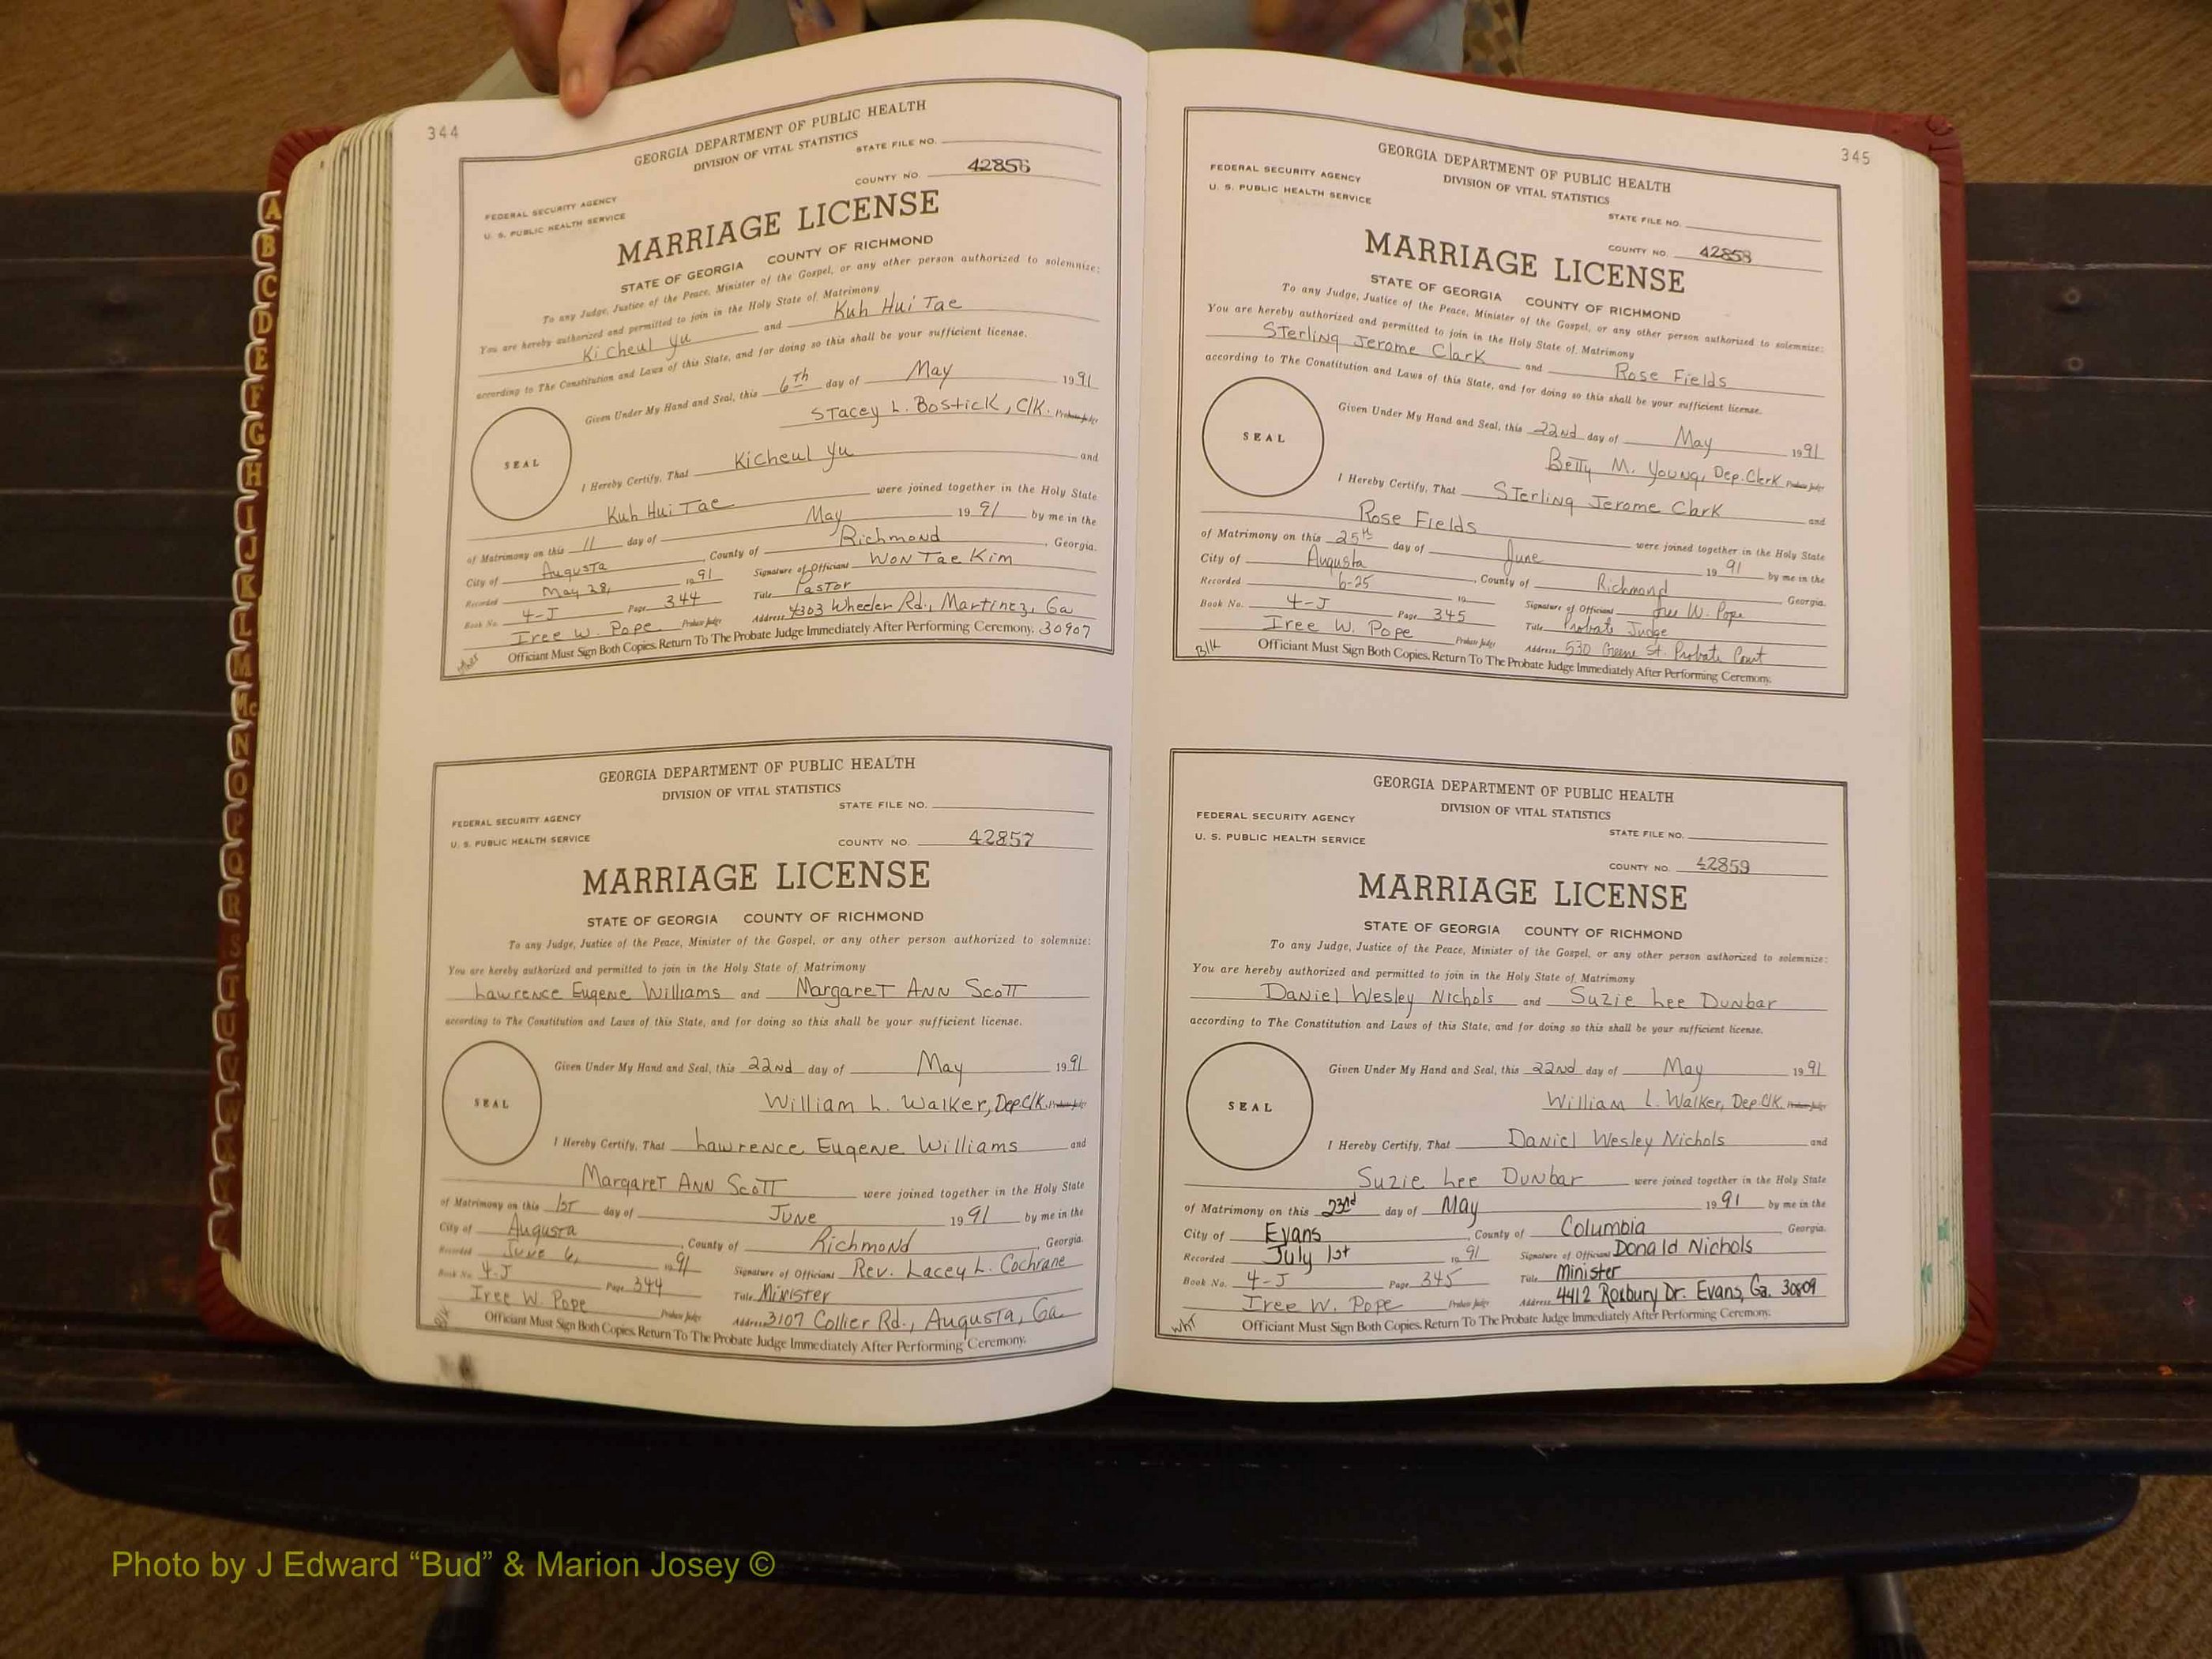 344
GEORGIA DEPARTMENT OF PUBLIC HEALTH
DIVISION OF VITAL STATISTICS
STATE FILE NO.
FEDERAL SECURITY AGENCY
U. S. PUBLIC HEALTH SERVICE
COUNTY NO. 42856
MARRIAGE LICENSE
STATE OF GEORGIA COUNTY OF RICHMOND
To any Judge, Justice of the Peace, Minister of the Gospel, or any other person authorized to solemnize:
You are hereby authorized and permitted to join in the Holy State of Matrimony
Ki Cheul Yu and Kuh Hui Tae
according to The Constitution and Laws of this State, and for doing so this shall be your sufficient license.
Given Under My Hand and Seal, this 6Th day of May 1991
Stacey L. Bostick, Clk. Probate Judge
SEAL
I Hereby Certify, That Kicheul Yu and
Kuh Hui Tae were joined together in the Holy State
of Matrimony on this 11 day of May 1991 by me in the
City of Augusta, County of Richmond, Georgia.
Recorded May 28, 1991 Signature of Officiant Won Tae Kim
Book No. 4-J Page 344 Title Pastor
Iree W. Pope Probate Judge Address 4303 Wheeler Rd., Martinez, Ga
Officiant Must Sign Both Copies. Return To The Probate Judge Immediately After Performing Ceremony. 30907
other
GEORGIA DEPARTMENT OF PUBLIC HEALTH
DIVISION OF VITAL STATISTICS
STATE FILE NO.
FEDERAL SECURITY AGENCY
U. S. PUBLIC HEALTH SERVICE
COUNTY NO. 42857
MARRIAGE LICENSE
STATE OF GEORGIA COUNTY OF RICHMOND
To any Judge, Justice of the Peace, Minister of the Gospel, or any other person authorized to solemnize:
You are hereby authorized and permitted to join in the Holy State of Matrimony
Lawrence Eugene Williams and Margaret Ann Scott
according to The Constitution and Laws of this State, and for doing so this shall be your sufficient license.
Given Under My Hand and Seal, this 22nd day of May 1991
William L. Walker, Dep Clk. Probate Judge
SEAL
I Hereby Certify, That Lawrence Eugene Williams and
Margaret Ann Scott were joined together in the Holy State
of Matrimony on this 1st day of June 1991 by me in the
City of Augusta, County of Richmond, Georgia.
Recorded June 6, 1991 Signature of Officiant Rev. Lacey L. Cochrane
Book No. 4-J Page 344 Title Minister
Iree W. Pope Probate Judge Address 3107 Collier Rd., Augusta, Ga.
Officiant Must Sign Both Copies. Return To The Probate Judge Immediately After Performing Ceremony.
Blk
345
GEORGIA DEPARTMENT OF PUBLIC HEALTH
DIVISION OF VITAL STATISTICS
STATE FILE NO.
FEDERAL SECURITY AGENCY
U. S. PUBLIC HEALTH SERVICE
COUNTY NO. 42858
MARRIAGE LICENSE
STATE OF GEORGIA COUNTY OF RICHMOND
To any Judge, Justice of the Peace, Minister of the Gospel, or any other person authorized to solemnize:
You are hereby authorized and permitted to join in the Holy State of Matrimony
Sterling Jerome Clark and Rose Fields
according to The Constitution and Laws of this State, and for doing so this shall be your sufficient license.
Given Under My Hand and Seal, this 22nd day of May 1991
Betty M. Young, Dep. Clerk Probate Judge
SEAL
I Hereby Certify, That Sterling Jerome Clark and
Rose Fields were joined together in the Holy State
of Matrimony on this 25th day of June 1991 by me in the
City of Augusta, County of Richmond Georgia.
Recorded 6-25 19 Signature of Officiant Iree W. Pope
Book No. 4-J Page 345 Title Probate Judge
Iree W. Pope Probate Judge Address 530 Greene St. Probate Court
Officiant Must Sign Both Copies. Return To The Probate Judge Immediately After Performing Ceremony.
Blk
GEORGIA DEPARTMENT OF PUBLIC HEALTH
DIVISION OF VITAL STATISTICS
STATE FILE NO.
FEDERAL SECURITY AGENCY
U. S. PUBLIC HEALTH SERVICE
COUNTY NO. 42859
MARRIAGE LICENSE
STATE OF GEORGIA COUNTY OF RICHMOND
To any Judge, Justice of the Peace, Minister of the Gospel, or any other person authorized to solemnize:
You are hereby authorized and permitted to join in the Holy State of Matrimony
Daniel Wesley Nichols and Suzie Lee Dunbar
according to The Constitution and Laws of this State, and for doing so this shall be your sufficient license.
Given Under My Hand and Seal, this 22nd day of May 1991
William L. Walker, Dep. Clk. Probate Judge
SEAL
I Hereby Certify, That Daniel Wesley Nichols and
Suzie Lee Dunbar were joined together in the Holy State
of Matrimony on this 23rd day of May 1991 by me in the
City of Evans, County of Columbia Georgia.
Recorded July 1st 1991 Signature of Officiant Donald Nichols
Book No. 4-J Page 345 Title Minister
Iree W. Pope Probate Judge Address 4412 Roxbury Dr. Evans, Ga. 30809
Officiant Must Sign Both Copies. Return To The Probate Judge Immediately After Performing Ceremony.
Wht
A
B
C
D
E
F
G
H
I
J
K
L
M
Mc
N
O
P
Q
R
S
T
U
V
W
Photo by J Edward “Bud” & Marion Josey ©